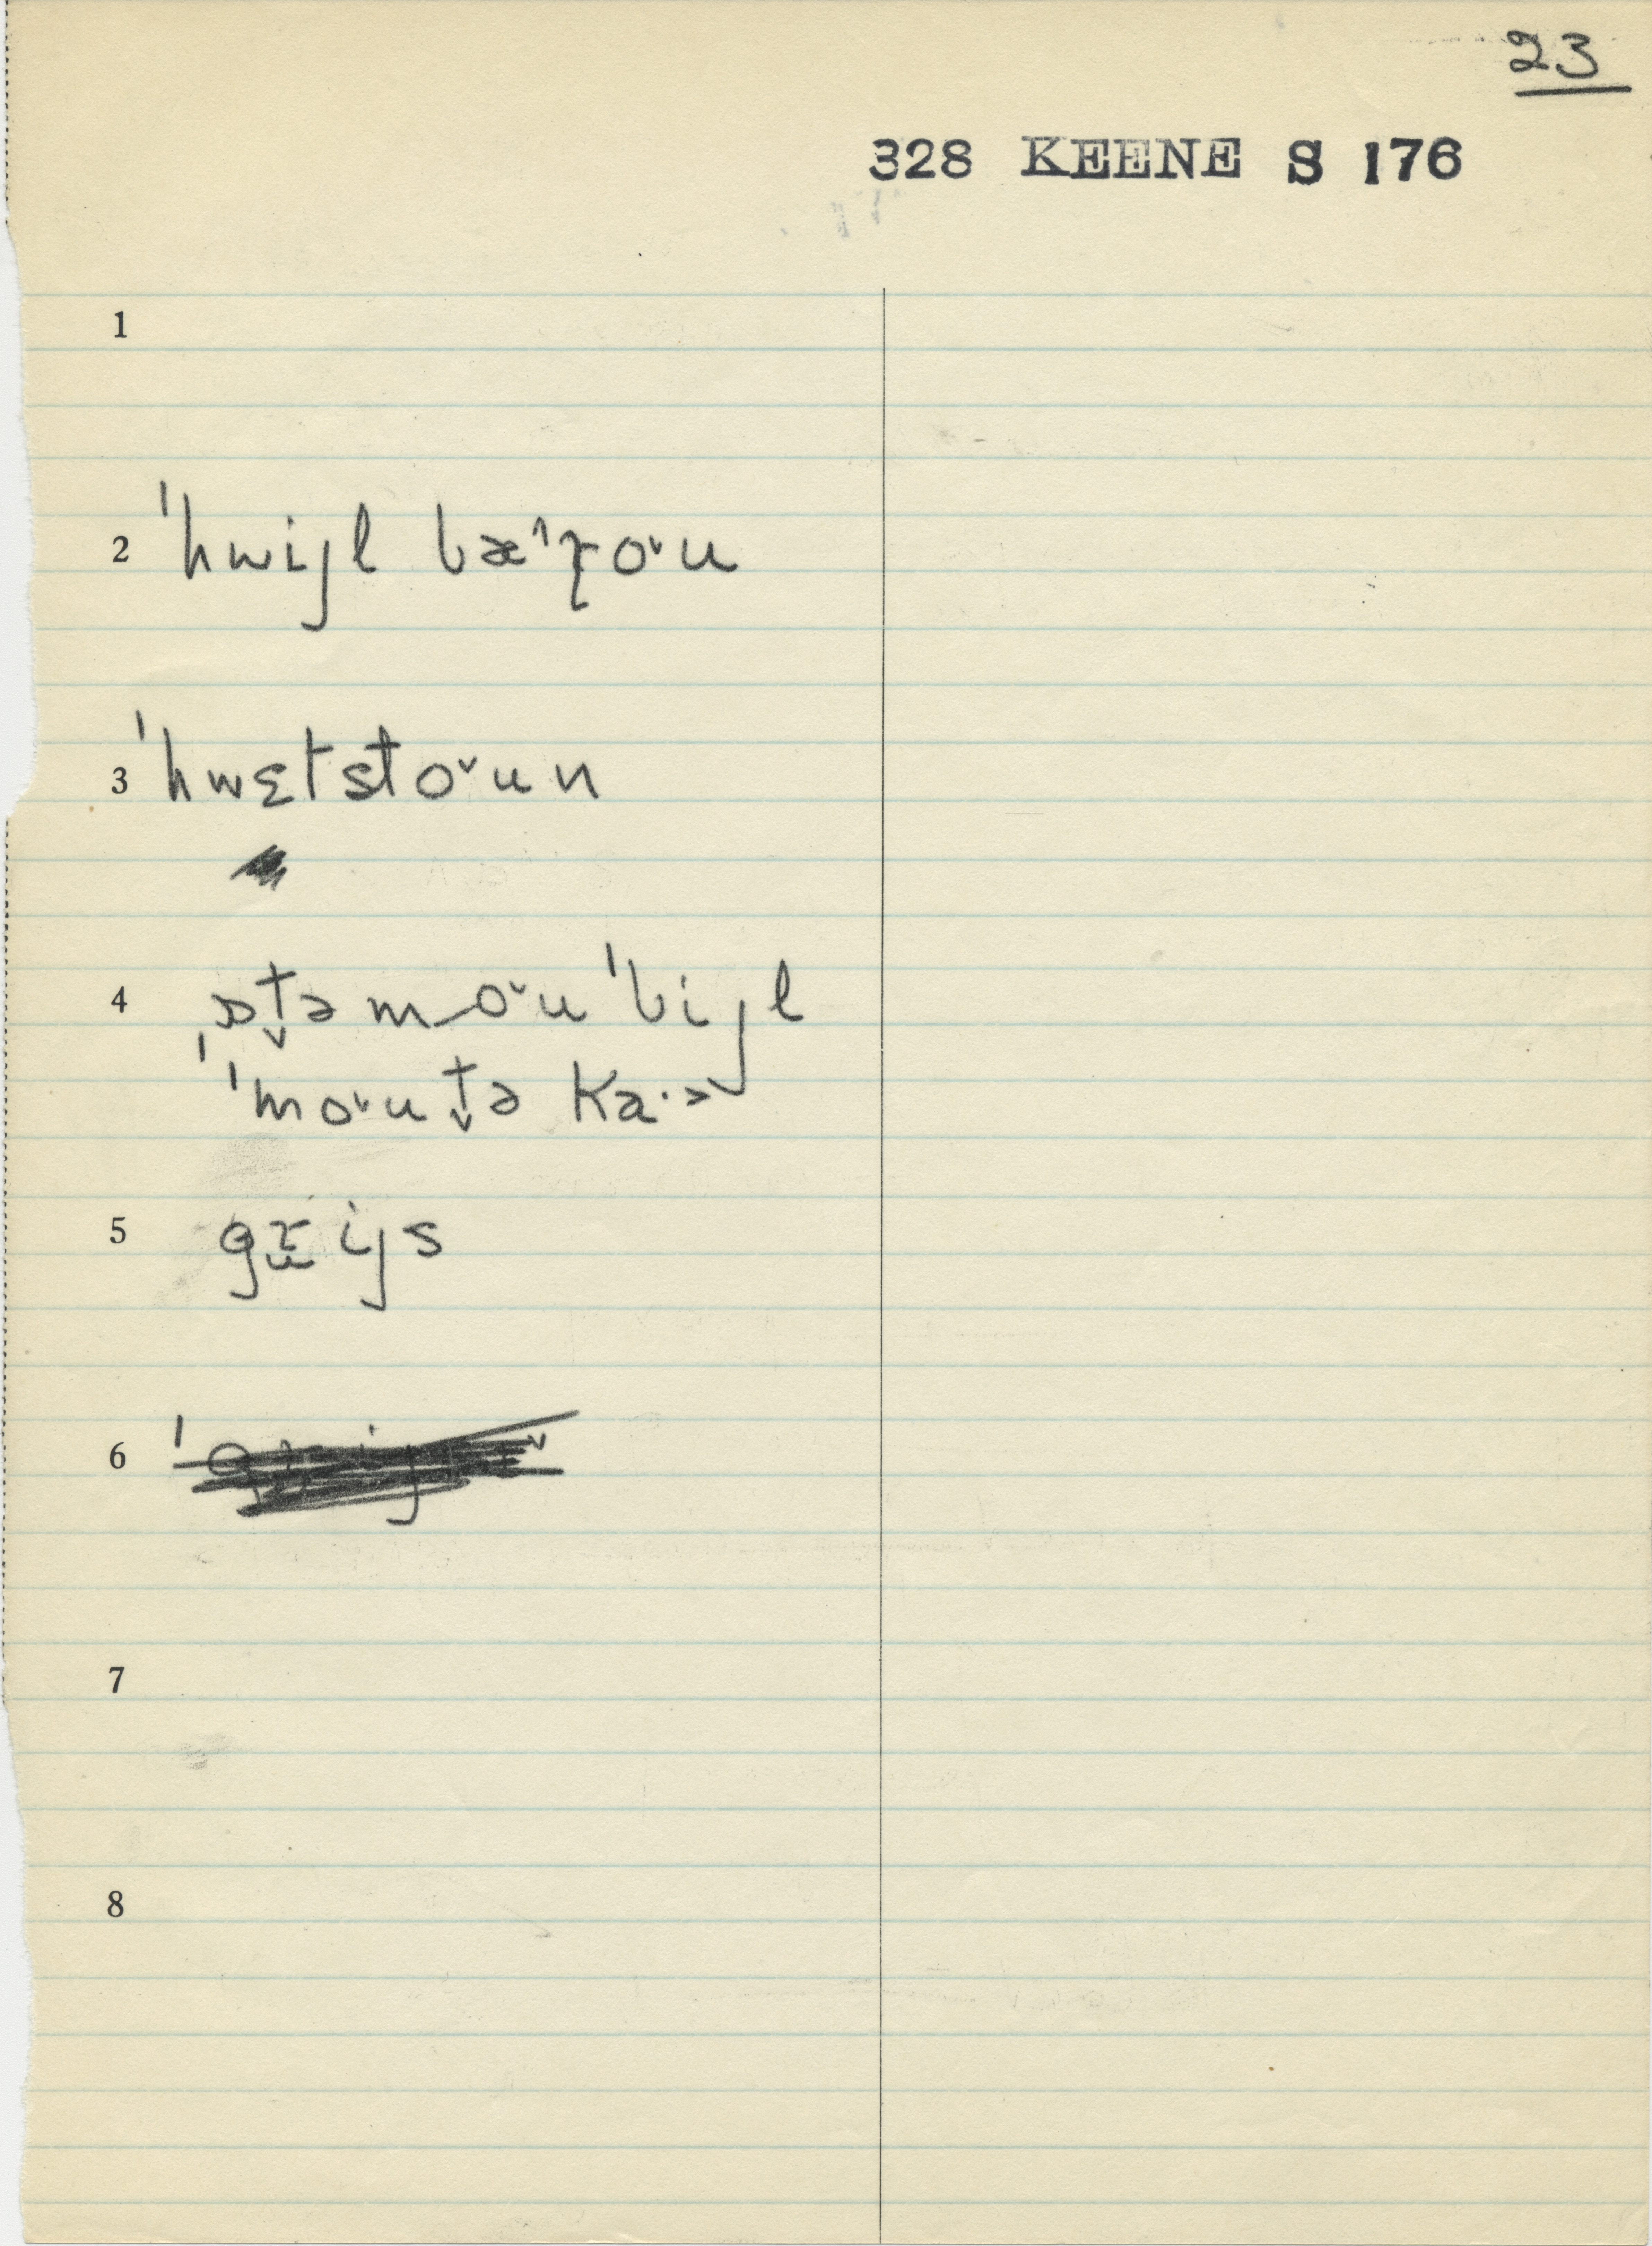 23
328 KEENE S 176
1
2 ˈhwijl bæˆɽoˇu
3 ˈhwɛtstoˇun
4 ˌɒt̬əmoˇuˈbijl
ˈmoˇut̬ə ka·ɚ
5 gr̬ijs
6
7
8